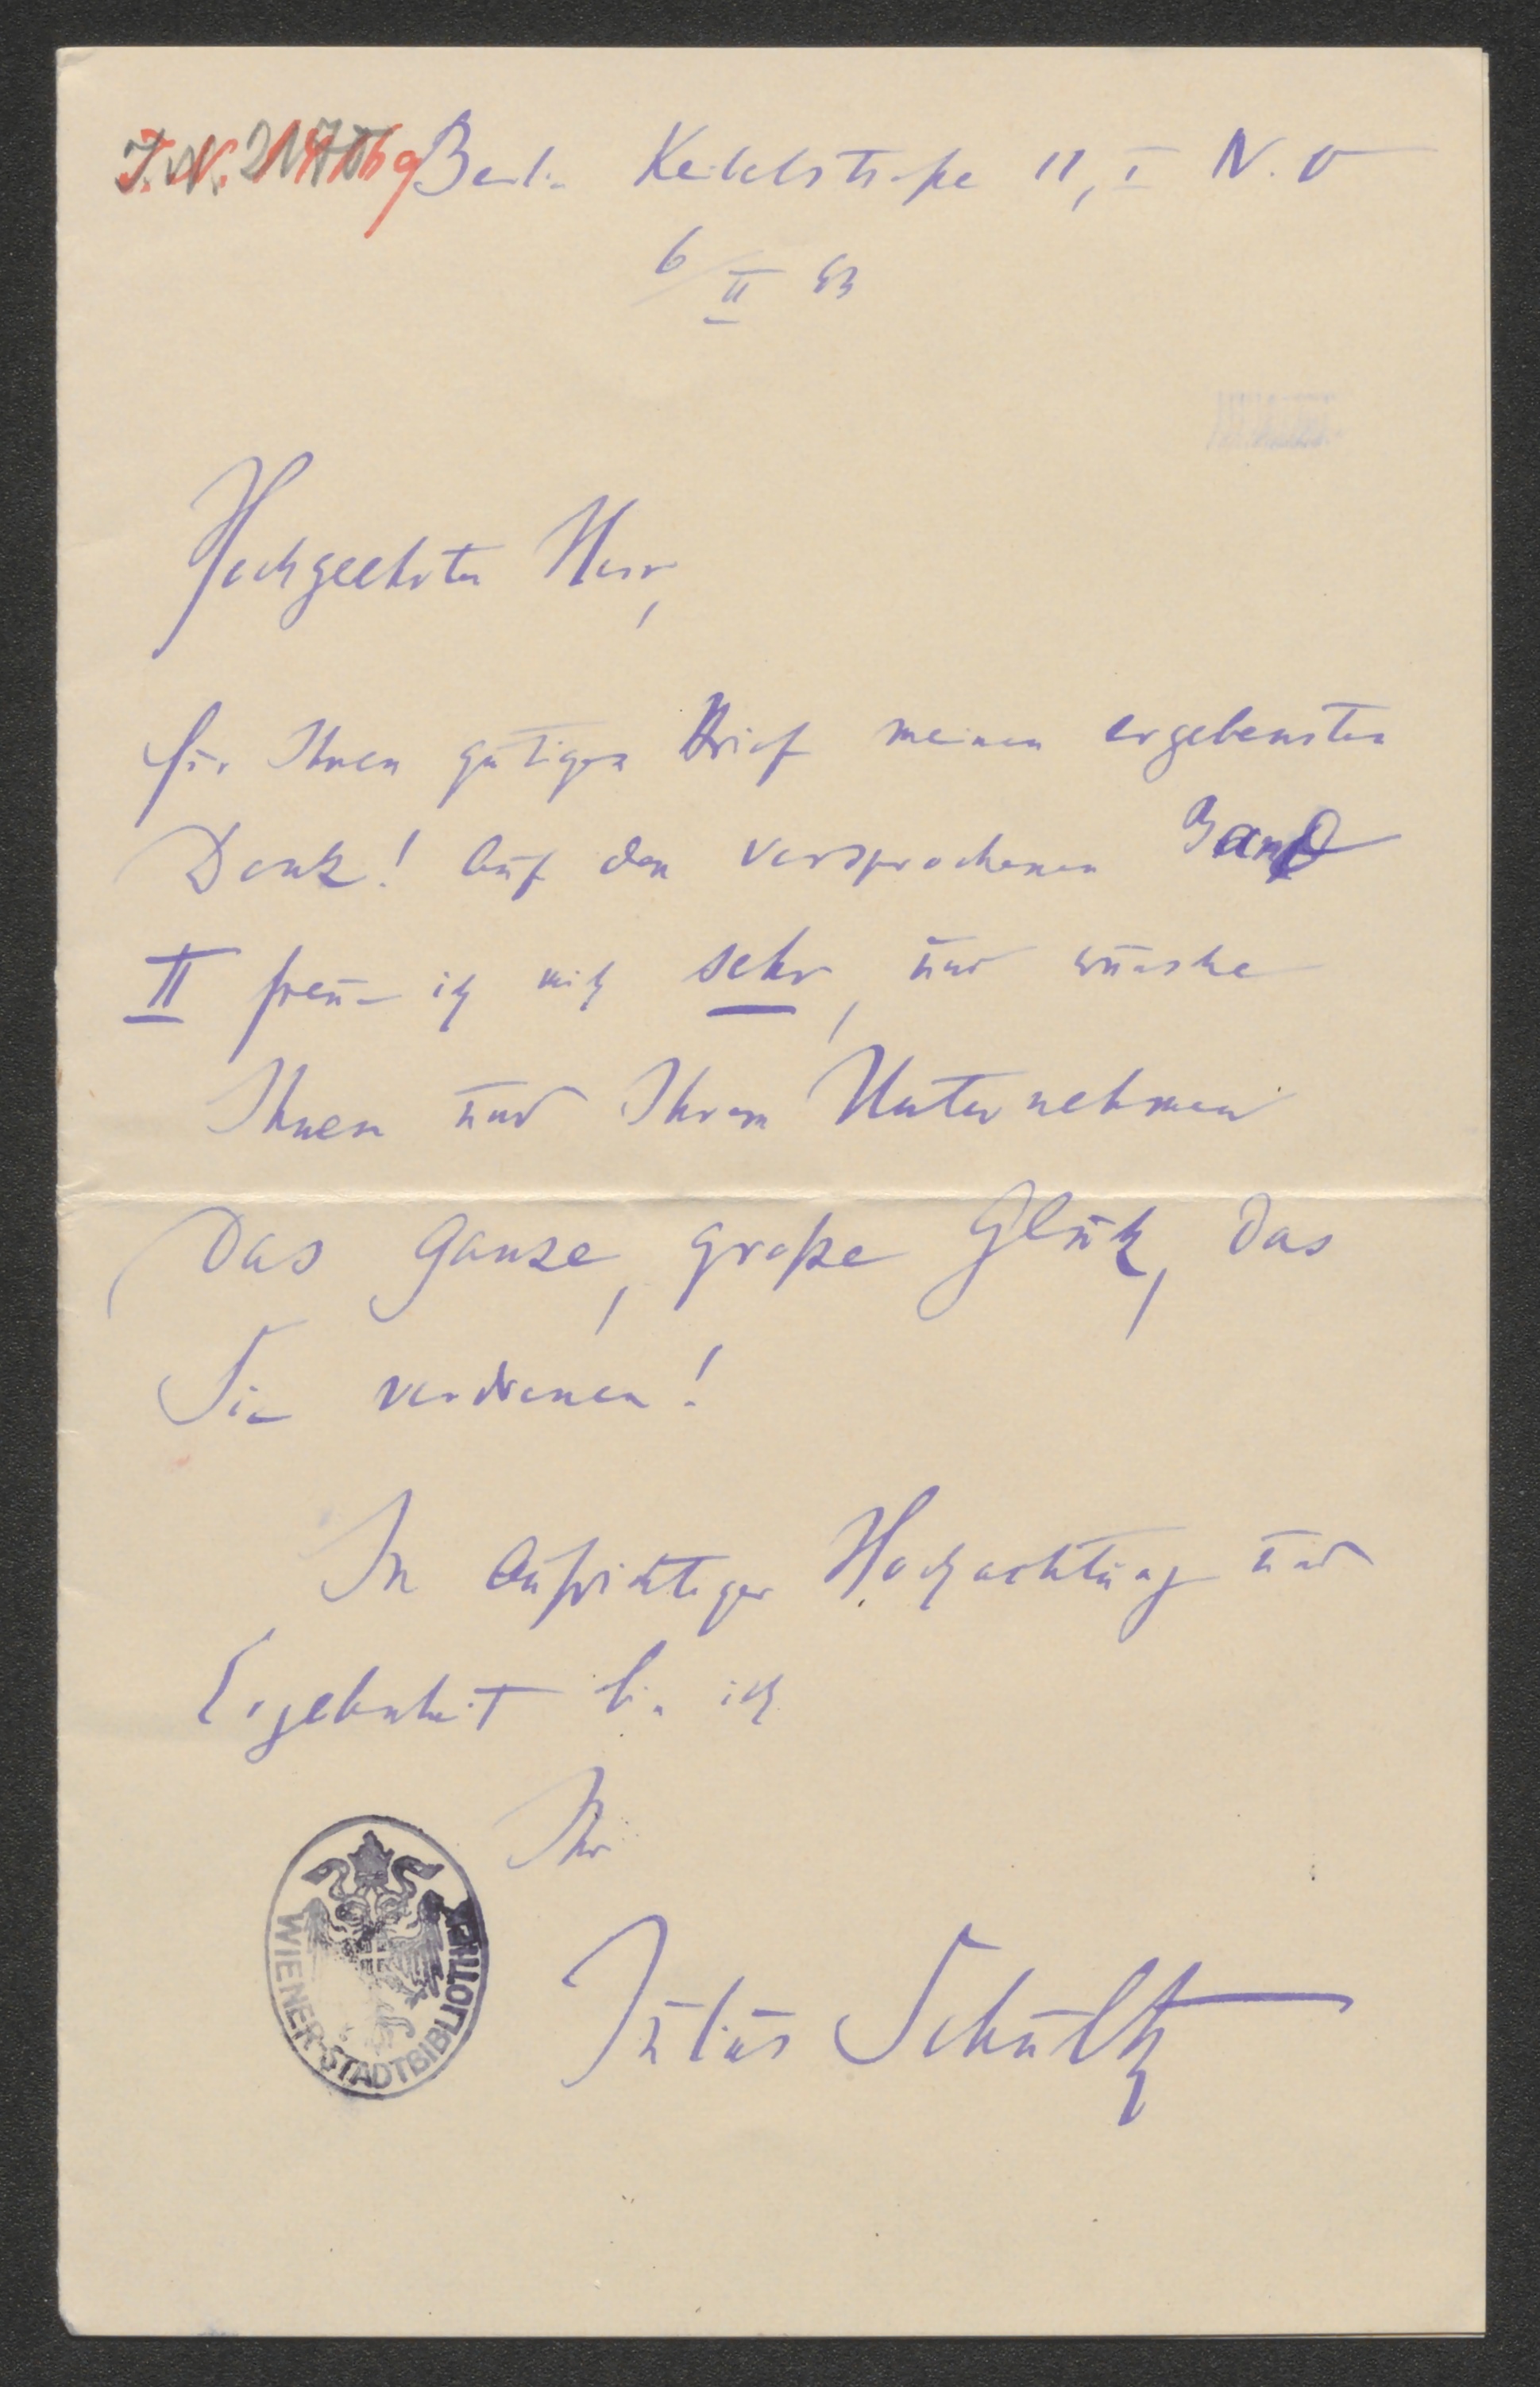 Berlin Keibelstraße 11, I N.O
6/II 93
Hochgeehrter Herr,
für Ihren gütigen Brief meinen ergebensten
Dank! Auf den versprochenen Band
II freue ich mich sehr, und wünsche
Ihnen und Ihrem Unternehmen
Das ganze, große Glück, das
Sie verdienen!
In aufrichtiger Hochachtung und
Ergebenheit bin ich
Ihr
Julius Schultz
WIENER STADTBIBLIOTHEK